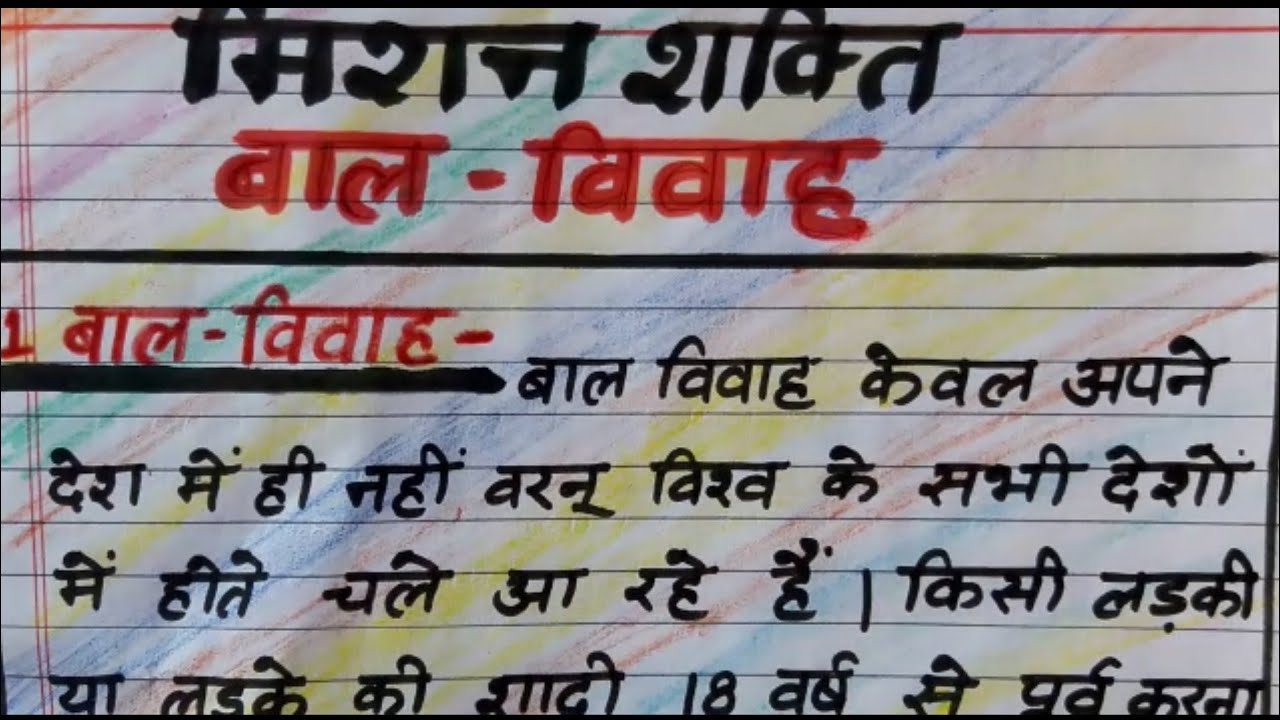 मिशन शक्ति
बाल - विवाह
1 बाल - विवाह -
बाल विवाह केवल अपने
देश में ही नहीं वरन् विश्व के सभी देशों
में होते चले आ रहे हैं । किसी लड़की
या लडके की शादी 18 वर्ष से पूर्व करना